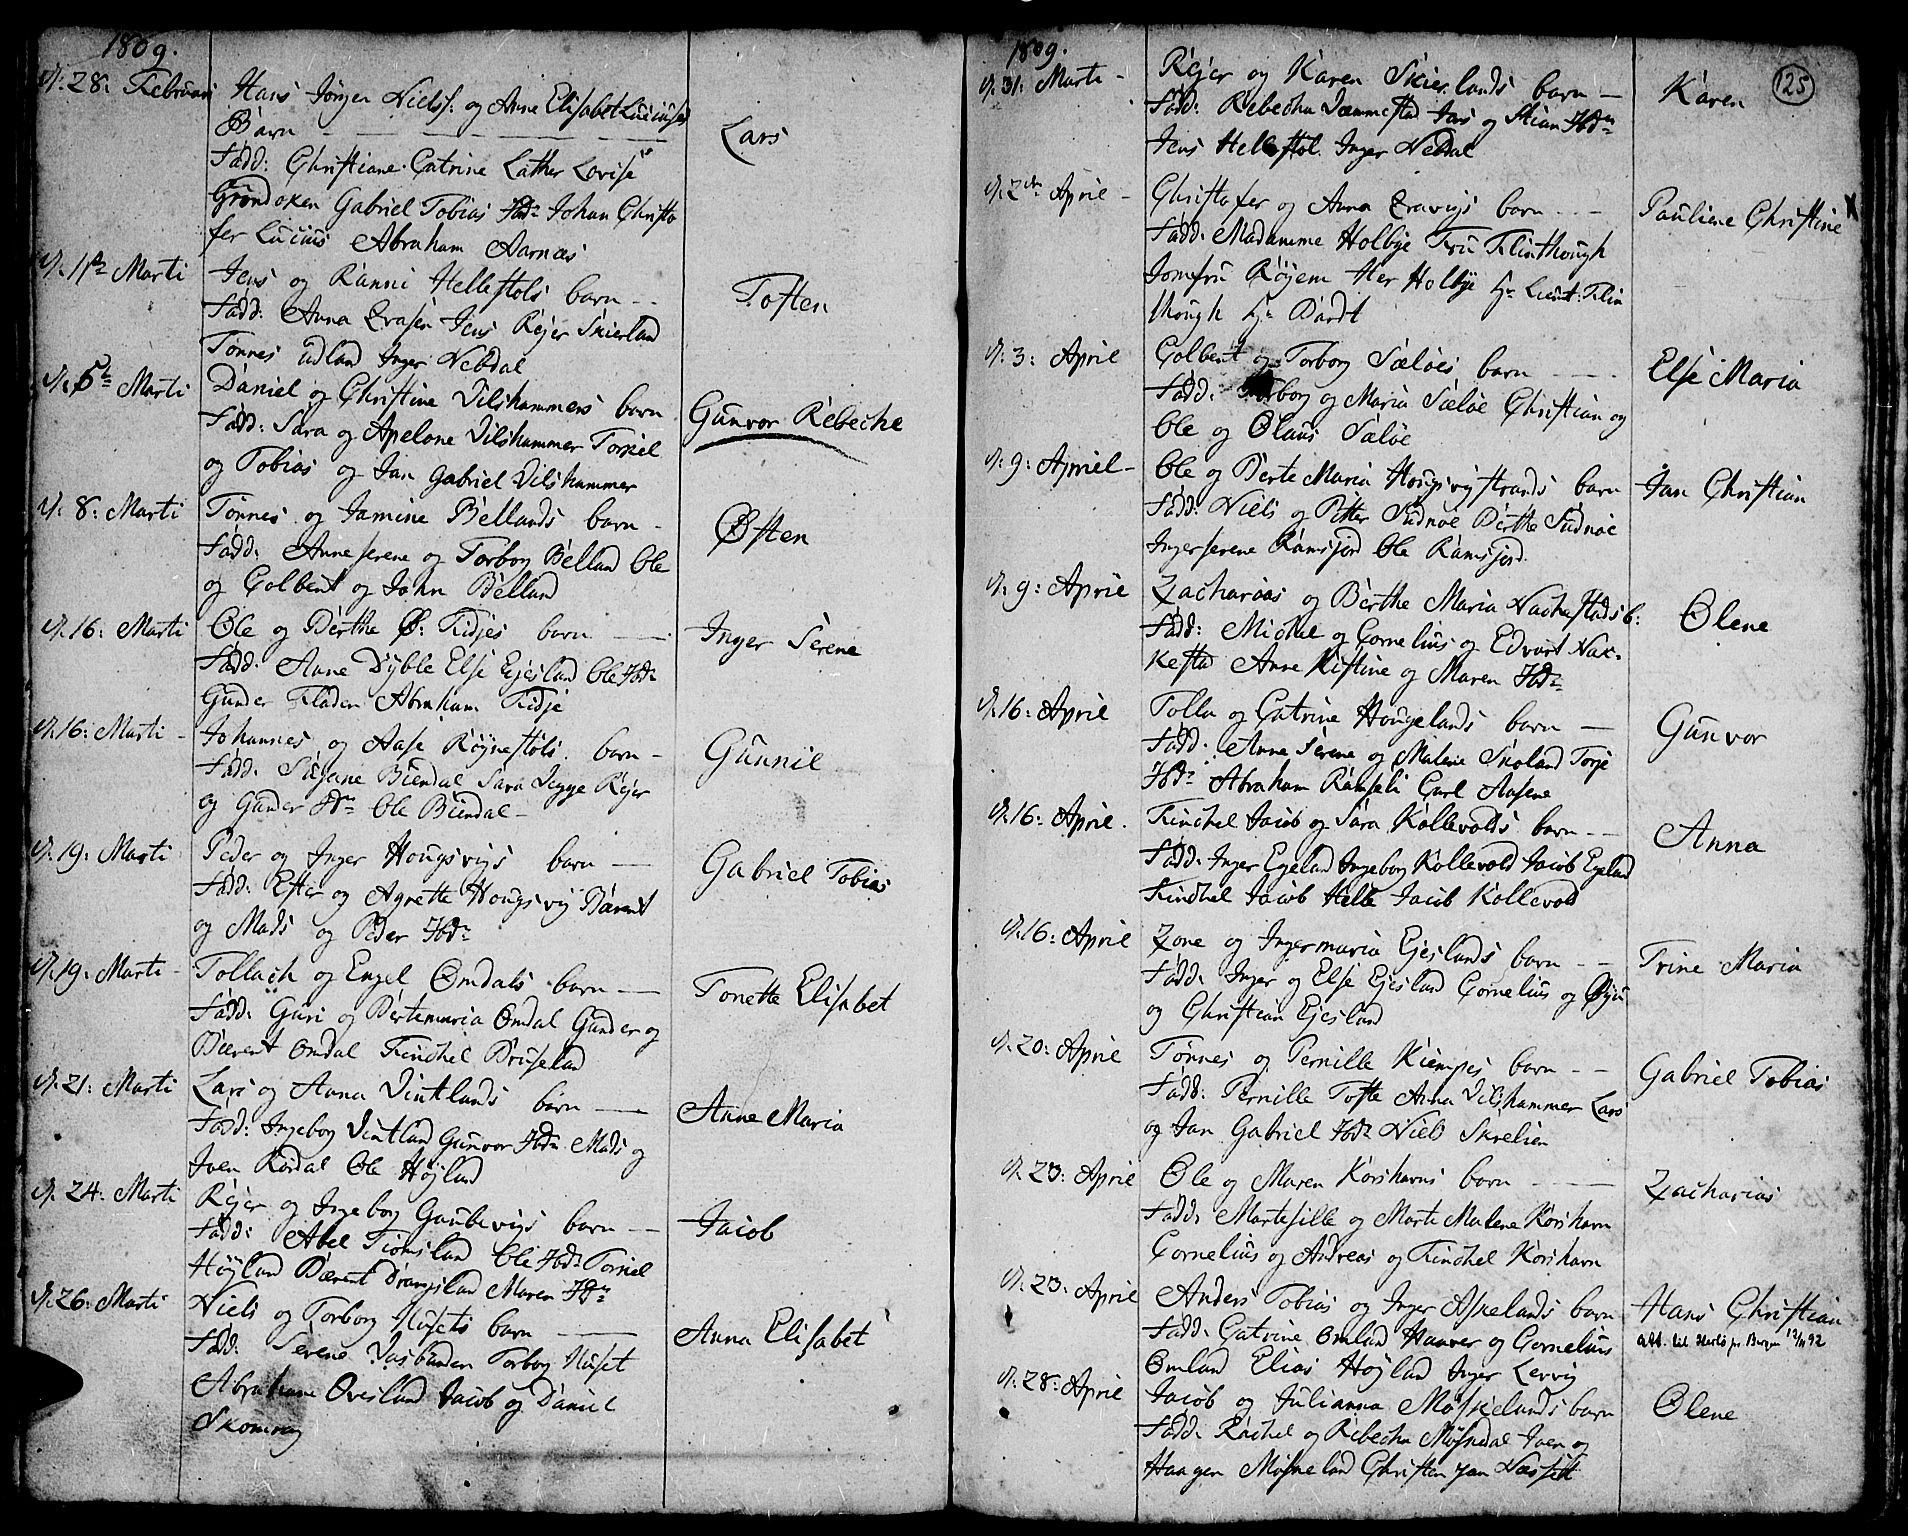 1809.
d. 28: Februari
Hans Jørgen Nielss: og Anne Elisabet Luciuses
Barn
Lars
Fadd: Christiane Catrine Lather Lovise
Gabriel Tobias Ibdm Johan Christo
fer Lucius Abraham Aarnæs
d. 1te Marti
Jens og Ranni Hellestols barn
Tosten
Fadd: Anna Jens Rejer Skierland
Tønnes Udland Inger Nebdal
d. 5te Marti
Daniel og Christine Vilshammers barn
Gunvor Rebecke
Fadd: Sara og Apelone Vilshammer Torkel
og Tobias og Jan Gabriel Vilshammer
d. 8: Marti
Tønnes og Jamine Bellands barn
Østen
Fadd: Anne serene og Torborg Belland Ole
og Colbent og John Belland
d. 16: Marti
Ole og Berthe Ø: Fidjes barn
Inger Serene
Fadd: Anne Dyble Else Ejesland Ole Ibdm
Gunder Fladen Abraham Fidje
d. 16: Marti
Johannes og Aase Røynestols barn
Gunnil
Fadd: Susane Biendal Sara Rejer
og Gunder Ibdm Ole Biendal
d. 19: Marti
Peder og Inger Hougsvigs barn
Gabriel Tobias
Fadd: Ester og Agnette Hougsvig Bærent
og Mads og Peder Ibdm
d. 19: Marti
Tollach og Engel Omdals barn
Tonette Elisabet
Fadd: Guri og Bertemaria Omdal Gunder og
Bærent Omdal Finchel Briseland
d. 21: Marti
Lars og Anna Vintlands barn
Anne Maria
Fadd: Ingeborg Vintland Gunvor Ibdm Mads og
Iven Rødal Ole Højland
d. 24: Marti
Rejer og Ingeborg Gaubevigs barn
Jacob
Fadd: Abel Fiomsland Ole Ibdm Torkiel
Højland Bærent Drangsland Maren Ibdm
d. 26: Marti
Niels og Torborg Husets barn
Anna Elisabet
Fadd: Serene Torborg Huset
Abraham Ovesland Jacob og Daniel
Skomrag
1809.
125
d. 31: Marti
Rejer og Karen Skierlands barn
Karen
Fadd: Rebecha Jars og Stian Ibdm
Jens Hellestol Inger Nebdal
d. 2den April
Christofer og Anna barn
Pauliene Christine
Fadd: Madamme Holbye Fru Flinthough
Jomfru Røyem Her Holbye Hr Lieut: Flin
though Hr Bardt
d. 3: April
Colbent og Torborg Sæløes barn
Else Maria
Fadd: Torborg og Maria Sæløe Christian og
Ole og Olaus Sæløe
d. 9: Apriel
Ole og Berte Maria Hougsvigstrands barn
Jan Christian
Fadd: Niels og Pitter Sudnøe Berthe Sudnøe
Ingerserene Ramsfjord Ole Ramsfjord
d. 9: April
Zacharias og Berthe Maria Nachestads b:
Olene
Fadd: Michal og Cornelius og Edvart Nak-
kestad Anne Kistine og Maren Ibdm
d. 16: April
Tolla og Catrine Hougelands barn
Gunvor
Fadd: Anne Serene og Malene Skoland Torje
Ibdm Abraham Ramseli Carl Aasene
d. 16: April
Finchel Jacob og Sara Kollevolds barn
Anna
Fadd: Inger Egeland Ingeborg Kollevold Jacob Egeland
Finchel Jacob Helle Jacob Kollevold
d. 16: April
Zone og Ingermaria Ejeslands barn
Trine Maria
Fadd: Inger og Else Ejesland Cornelius og
og Christian Ejesland
d. 20: April
Tønnes og Pernille Kiempes barn
Gabriel Tobias
Fadd: Pernille Tofte Anna Vilshammer Lars
og Jan Gabriel Ibdm Niels Skrelien
d. 23: April
Ole og Maren Korshavns barn
Zacharias
Fadd: Martesille og Marte Malene Korshavn
Cornelius og Andreas og Finchel Korshavn
d. 23: April
Anders Tobias og Inger Askelands barn
Hans Christian
Fadd: Catrine Omland Haaver og Cornelius
Omland Elias Højland Inger Lervig
d. 28: April
Jacob og Julianna Møskelands barn
Olene
Fadd: Rachel og Rebecha Møskedal Iven og
Haagen Møskeland Christen Jan Næsset